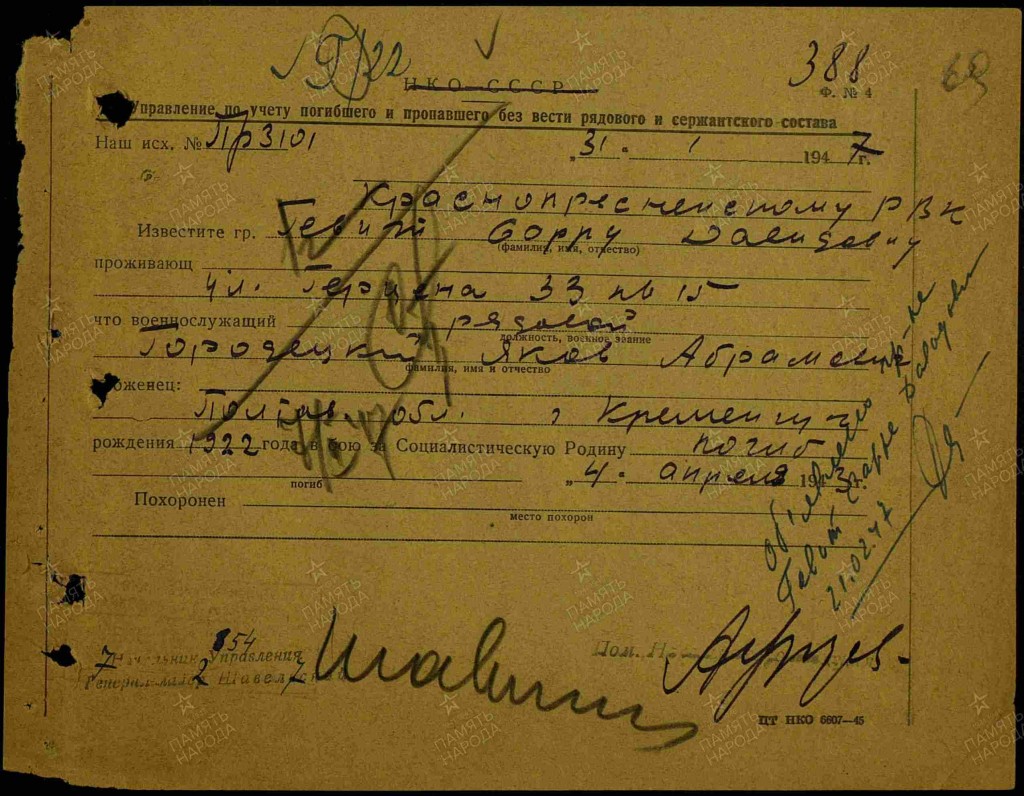 Г/22
388
69
НКО СССР
Ф. № 4
Управление по учету погибшего и пропавшего без вести рядового и сержантского состава
Наш исх. № Пр3101 „31“ 1 1947г.
Краснопресненскому РВК
Известите гр. Сарру Давидовну
(фамилия, имя, отчество)
проживающ
ул. Герцена 33 кв 15
что военнослужащий рядовой
должность, военное звание
Городецкий Яков Абрамович
фамилия, имя и отчество
оженец:
Полтав. обл. г Кременчуг
рождения 1922 года в бою за Социалистическую Родину погиб
погиб „4“ апреля 1943г.
Похоронен
место похорон
21.02.47
854
Начальник Управления
Генерал-майор Шавельский
Пом.
ЦТ НКО 6607—45
ПАМЯТЬ НАРОДА